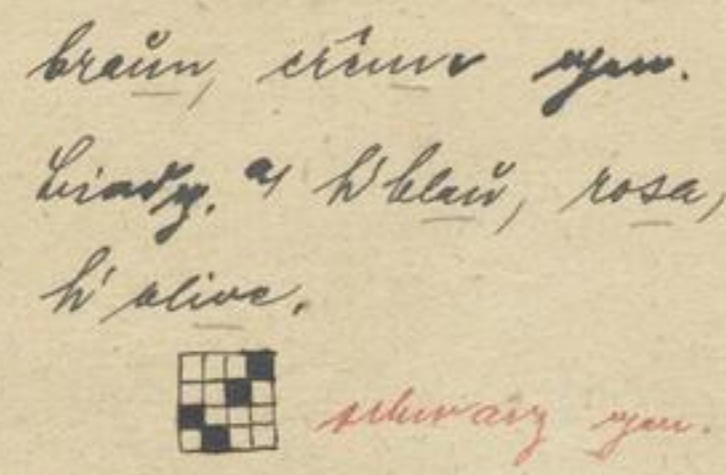 braun, crême gem.
Bindg. a) h'blau, rosa,
h'olive.
schwarz gem.